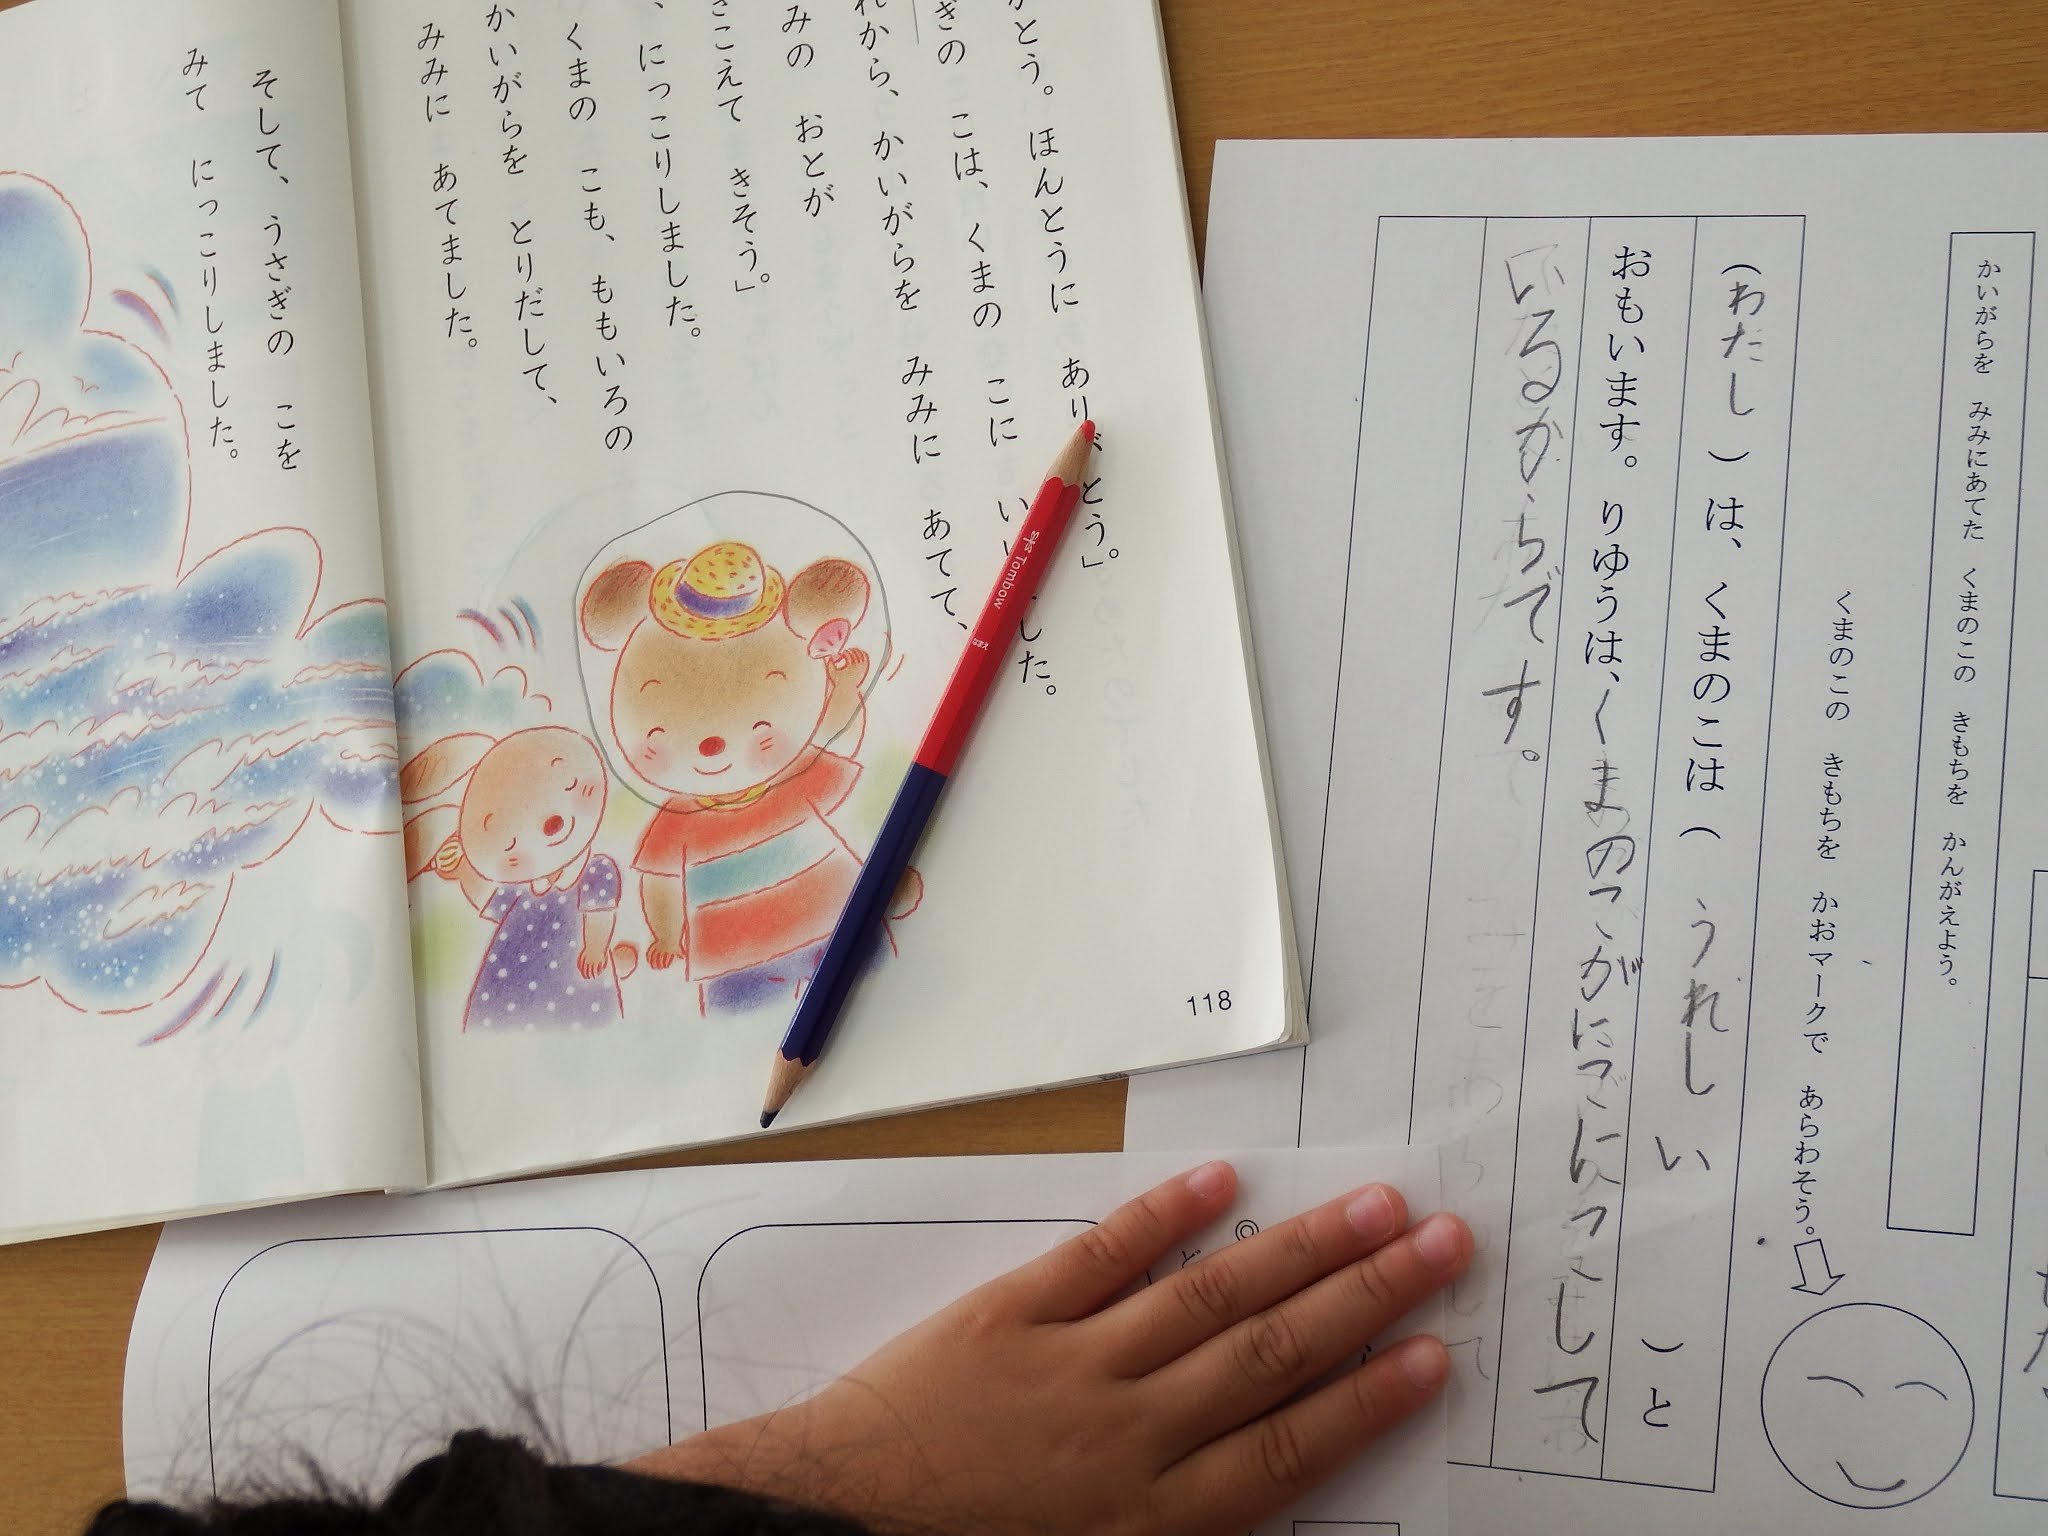 かいがらを みみにあてた くまのこの きもちを かんがえよう。
くまのこの きもちを かおマークで あらわそう。
(わたし)は、くまのこは(うれしい)と
おもいます。りゆうは、くまのこがにこにこして
いるからです。
とう。ほんとうに ありがとう」
ぎの こは、くまの こに いいました。
れから、かいがらを みみに あてて、
みの おとが
きこえて きそう。」
、にっこりしました。
くまの こも、ももいろの
かいがらを とりだして、
みみに あてました。
そして、うさぎの こを
みて にっこりしました。
118
Tombow